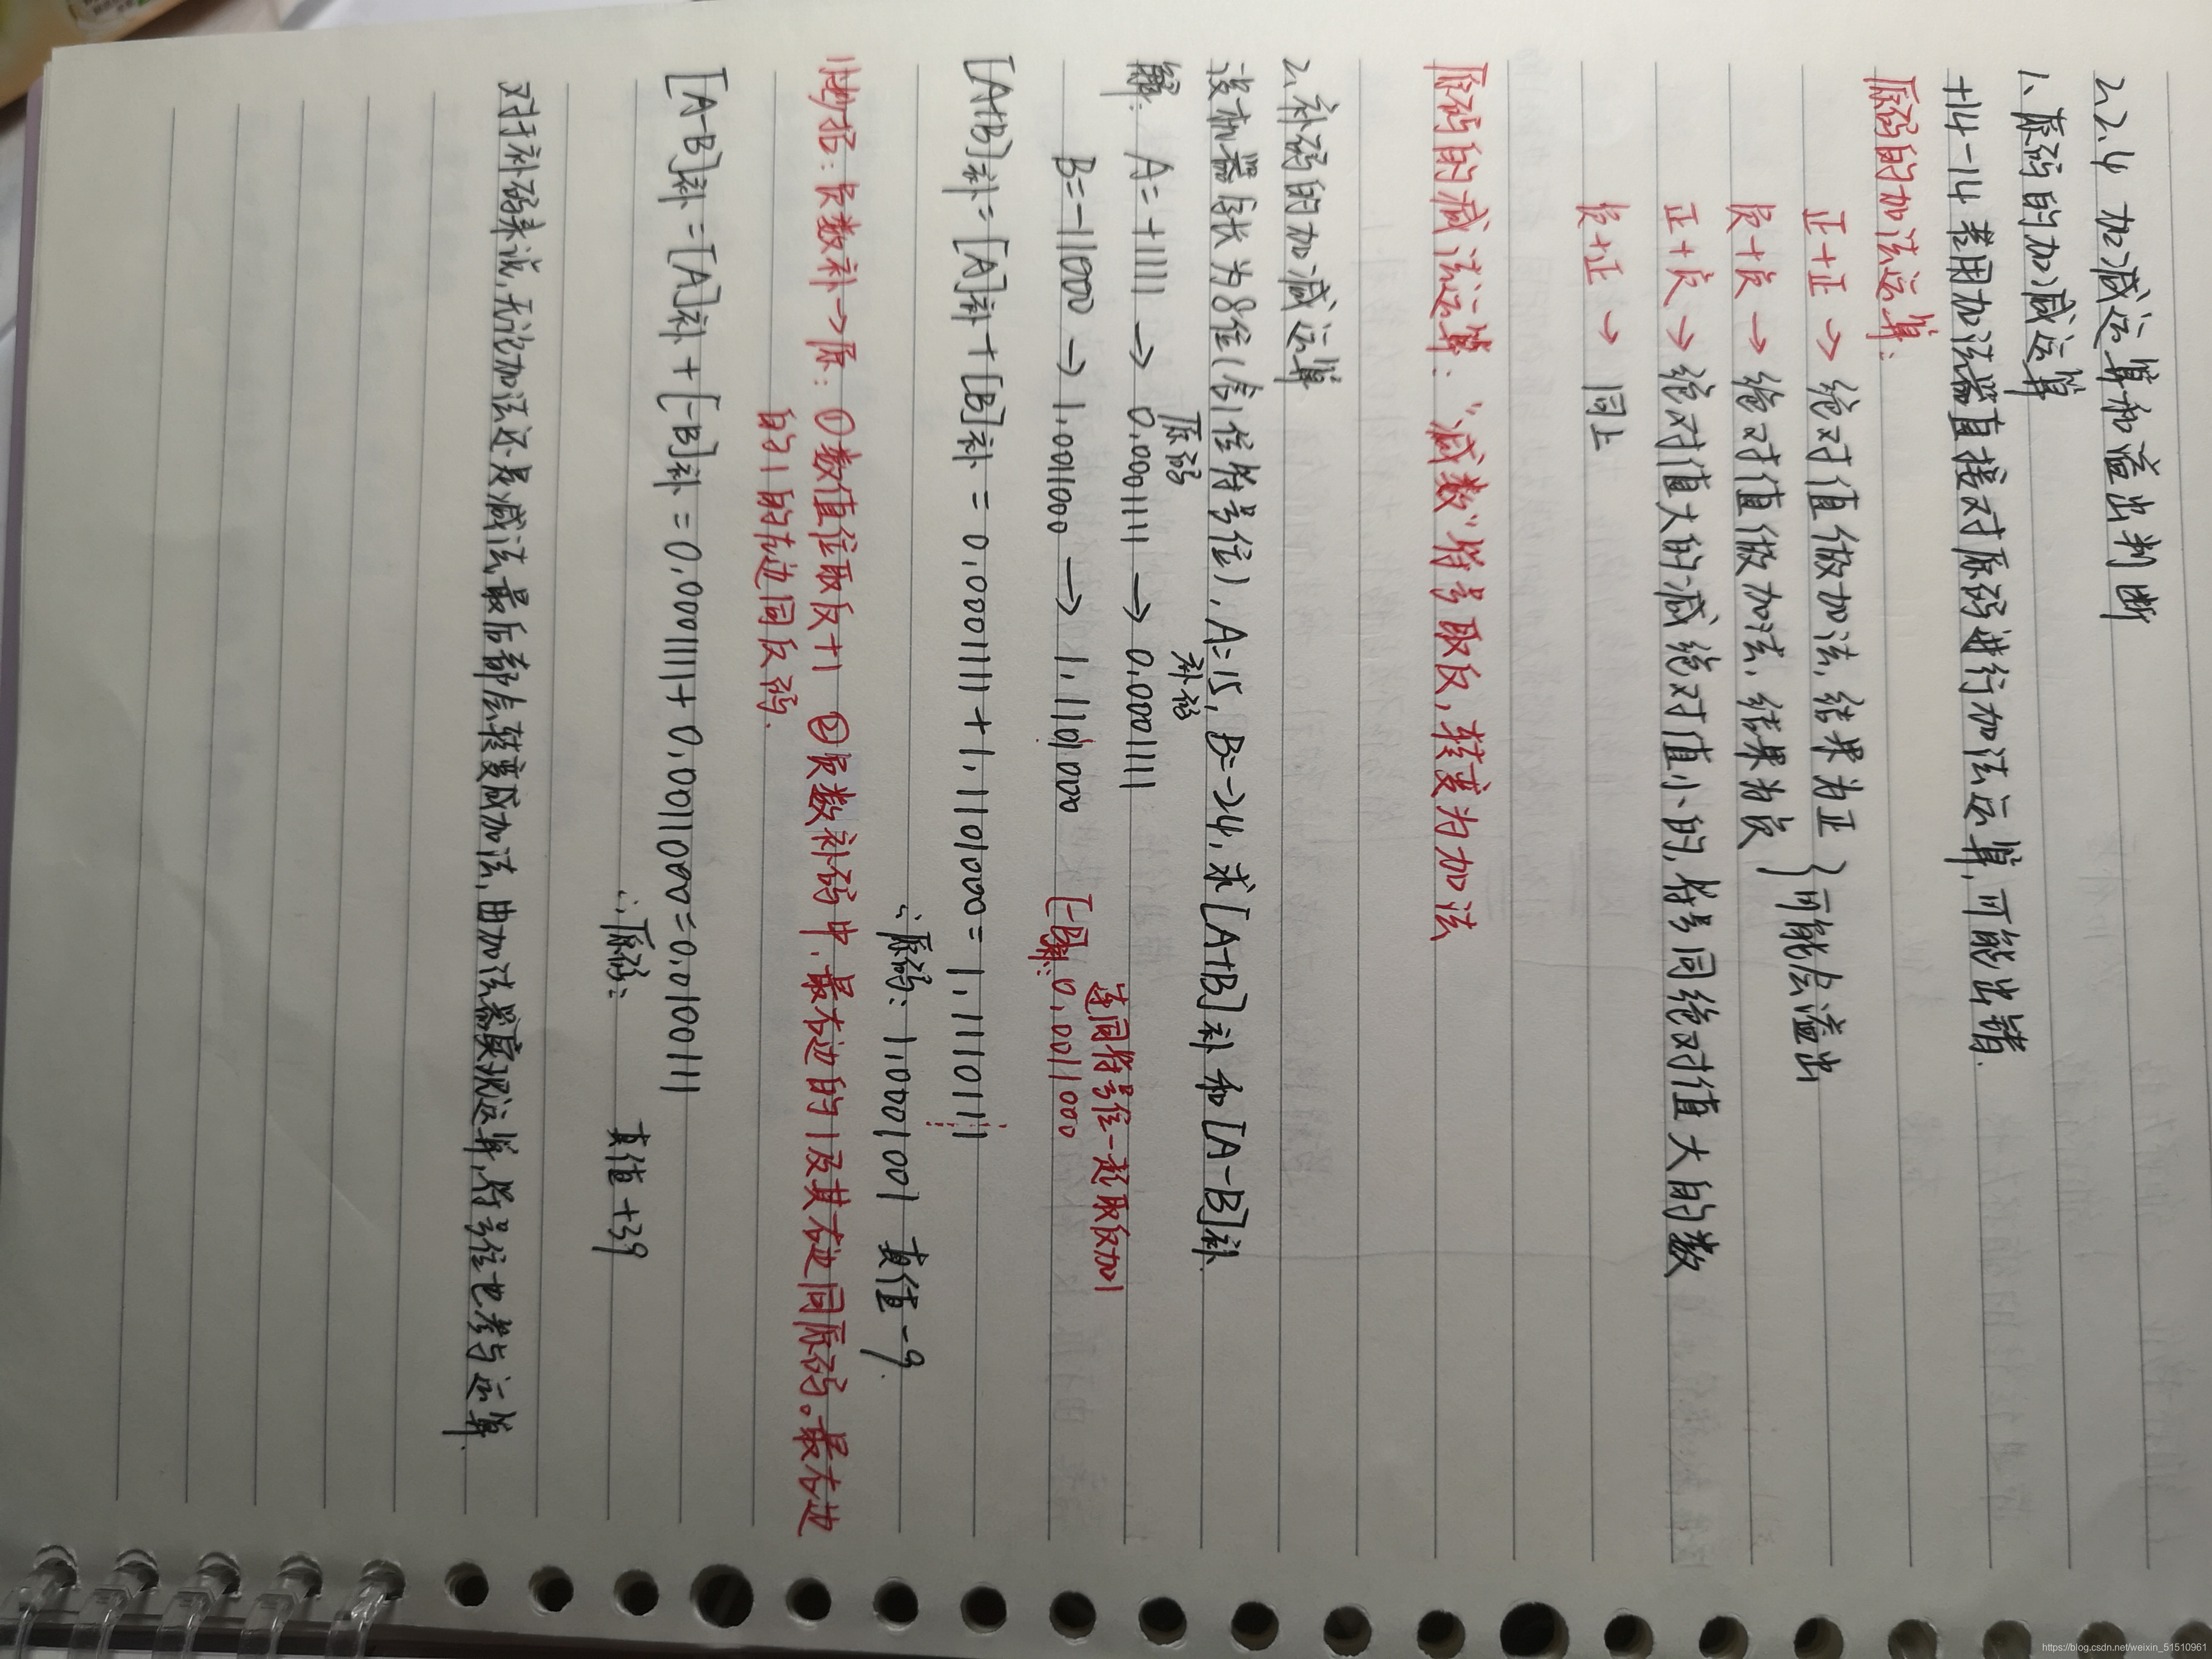 2.2.4 加减运算和溢出判断
1、原码的加减运算
+14-14 若用加法器直接对原码进行加法运算，可能出错.
原码的加法运算：
正+正 → 绝对值做加法，结果为正
负+负 → 绝对值做加法，结果为负 } 可能会溢出
正+负 → 绝对值大的减绝对值小的，符号同绝对值大的数
负+正 → 同上
原码的减法运算：“减数”符号取反，转变为加法
2、补码的加减运算
设机器字长为8位(含1位符号位)，A=15，B=-24，求[A+B]补和[A-B]补
原码 补码
解：A=+1111 → 0,0001111 → 0,0001111
连同符号位一起取反加1
B=-11000 → 1,0011000 → 1,1101000 [-B]补：0,0011000
[A+B]补=[A]补+[B]补=0,0001111+1,1101000=1,1110111
∴原码：1,0001001 真值-9
：负数补→原：①数值位取反+1 ②负数补码中，最右边的1及其右边同原码。最右边
的1的左边同反码.
[A-B]补=[A]补+[-B]补=0,0001111+0,0011000=0,0100111
∴原码： 真值+39
对于补码来说，无论加法还是减法，最后都会转变成加法，由加法器实现运算，符号位也参与运算.
https://blog.csdn.net/weixin_51510961